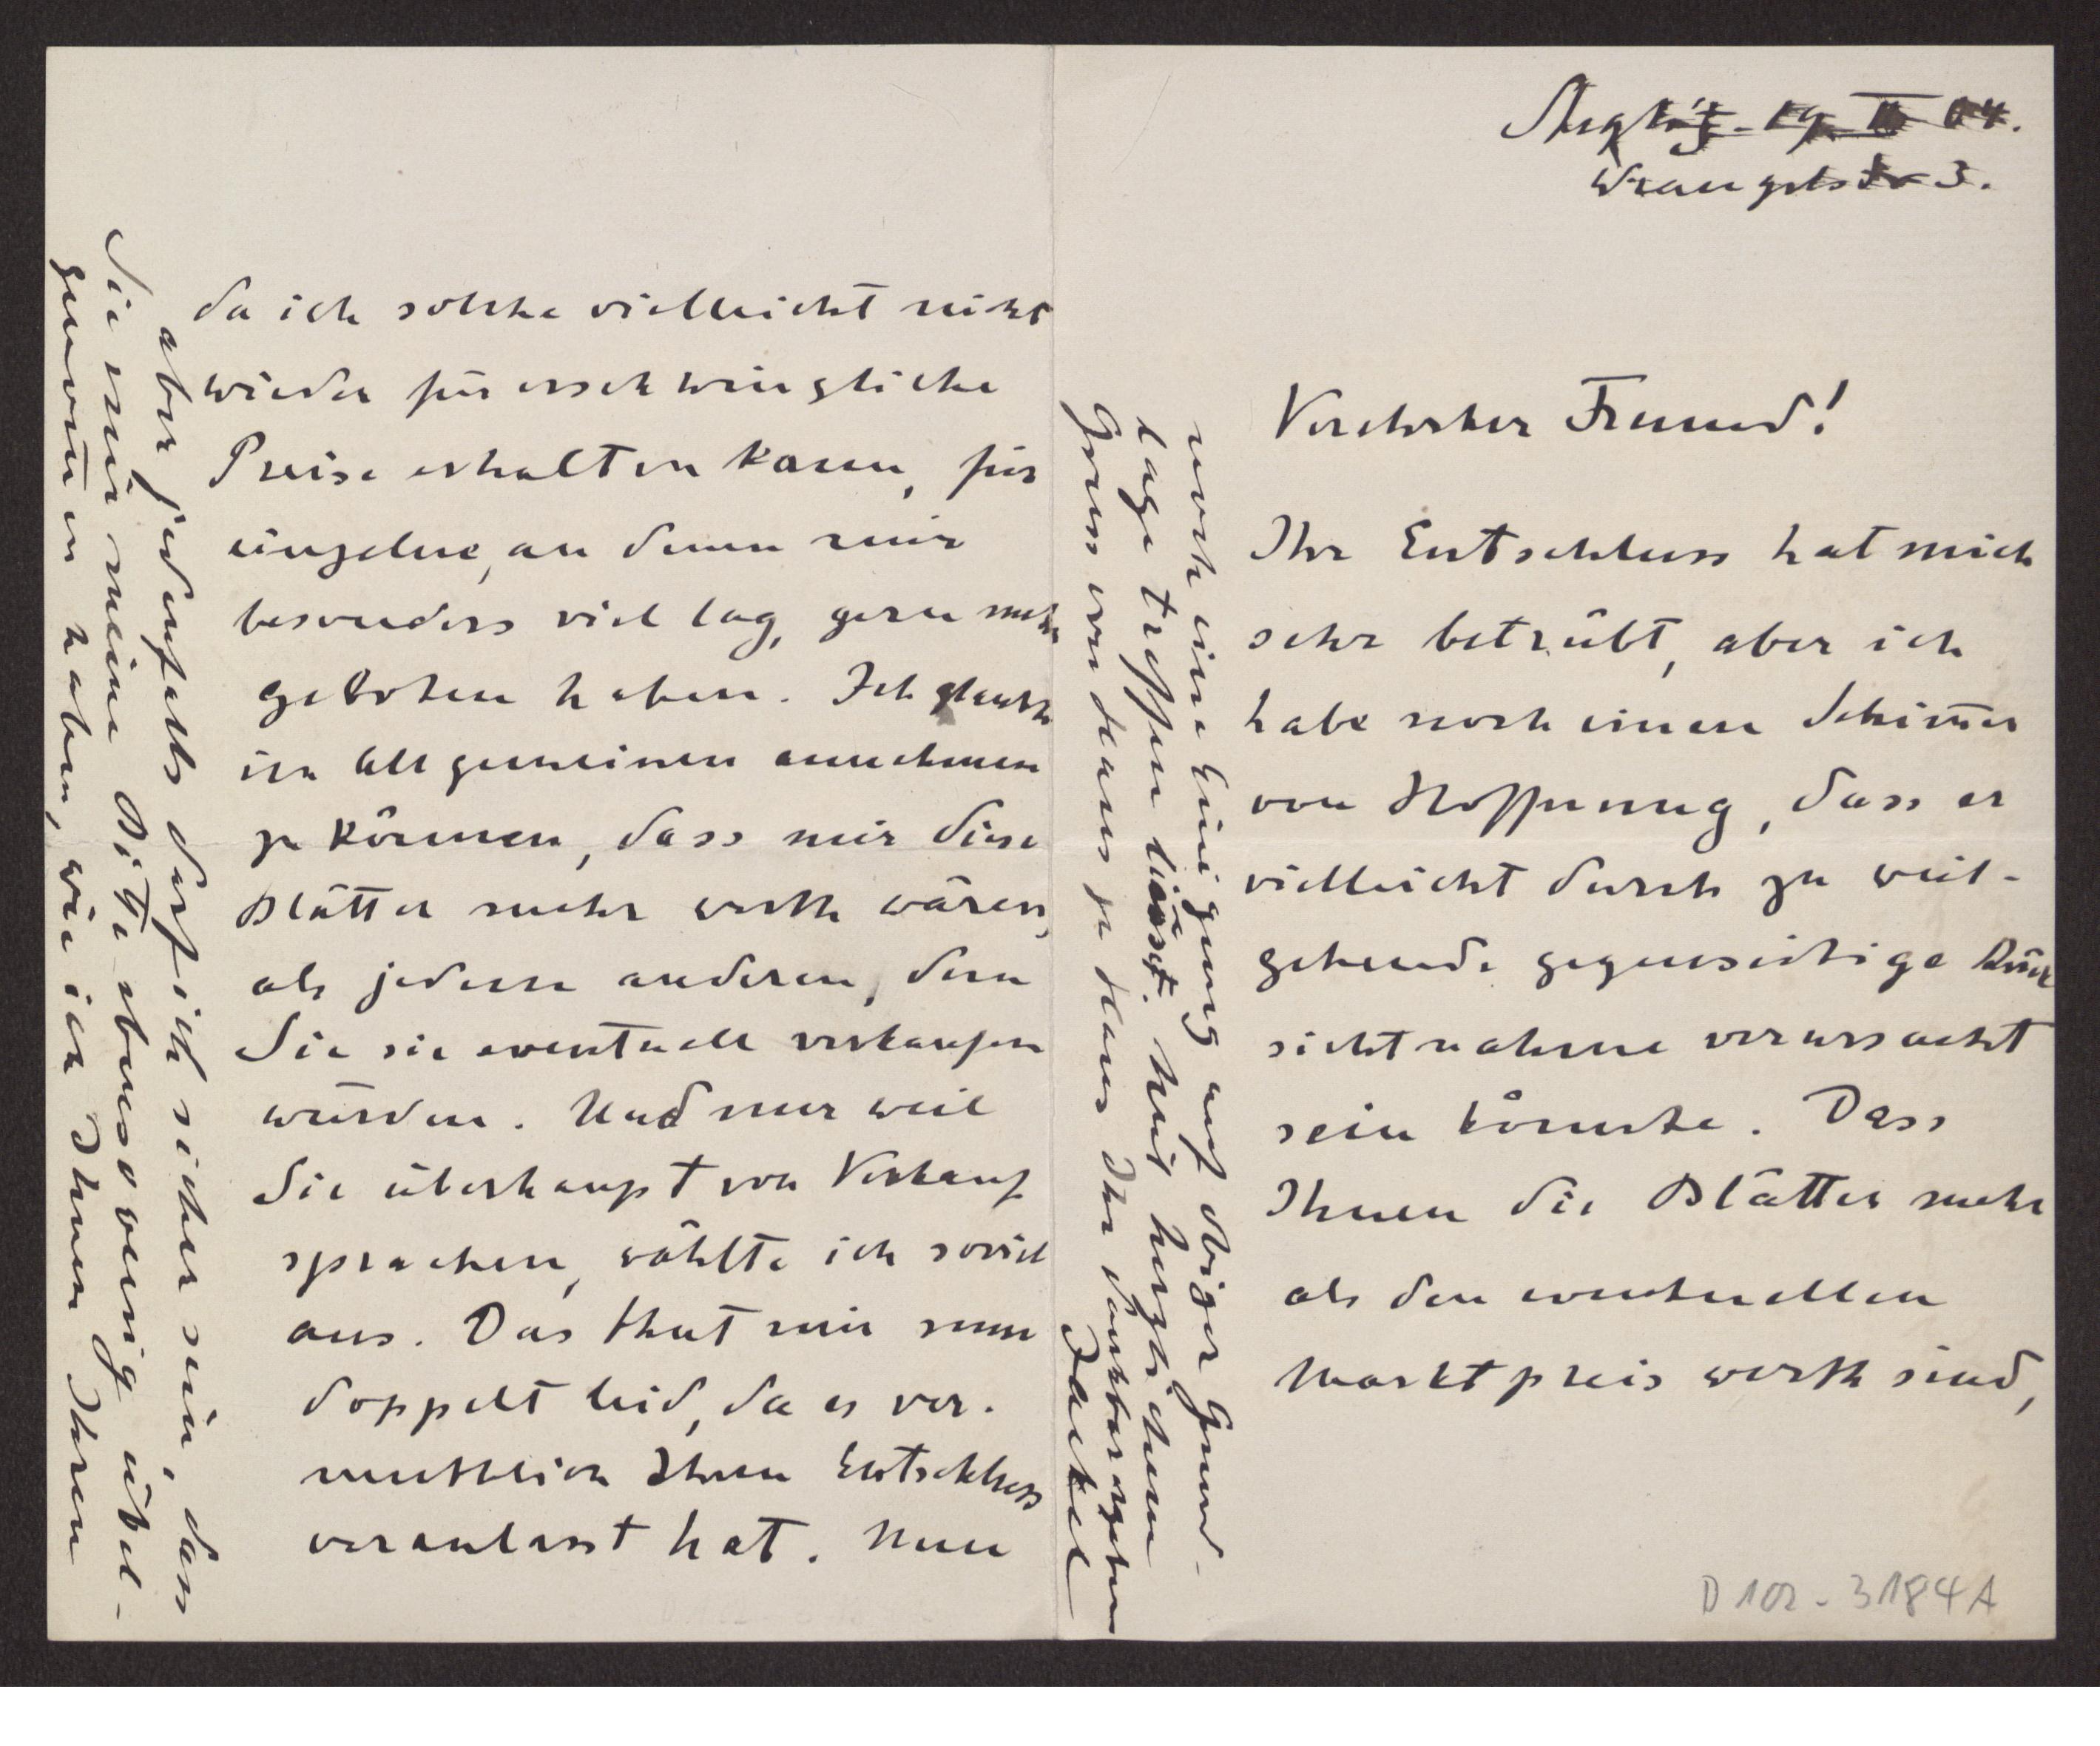 Steglitz. 19 II 04.
Wrangelstr 3.
Verehrter Freund!
Ihr Entschluss hat mich
sehr betrübt, aber ich
habe noch einen Schim̅er
von Hoffnung, dass er
vielleicht durch zu weit-
gehende gegenseitige Rück
sichtnahme verursacht
sein könnte. Dass
Ihnen die Blätter mehr
als den eventuellen
Marktpreis werth sind,
da ich solche vielleicht nicht
wieder für erschwingliche
Preise erhalten kann, für
einzelne, an denen mir
besonders viel lag, gern mehr
geboten haben. Ich glaubte
im Allgemeinen annehmen
zu können, dass mir diese
Blätter mehr werth wären,
als jedem anderen, dem
Sie sie eventuell verkaufen
würden. Und nur weil
Sie überhaupt von Verkauf
sprachen, wählte ich soviel
aus. Das thut mir nun
doppelt leid, da es ver-
muthlich Ihren Entschluss
veranlasst hat. Nun
aber jedenfalls darf ich sicher sein, dass
Sie mir meine Bitte ebensowenig übel-
genom̅en haben, wie ich Ihnen Ihren
noch eine Einigung auf obiger Grund-
lage treffen lässt. Mit herzlichem
Gruss von Haus zu Haus Ihr dankbar ergebener
Jaeckel
D 102-3184A